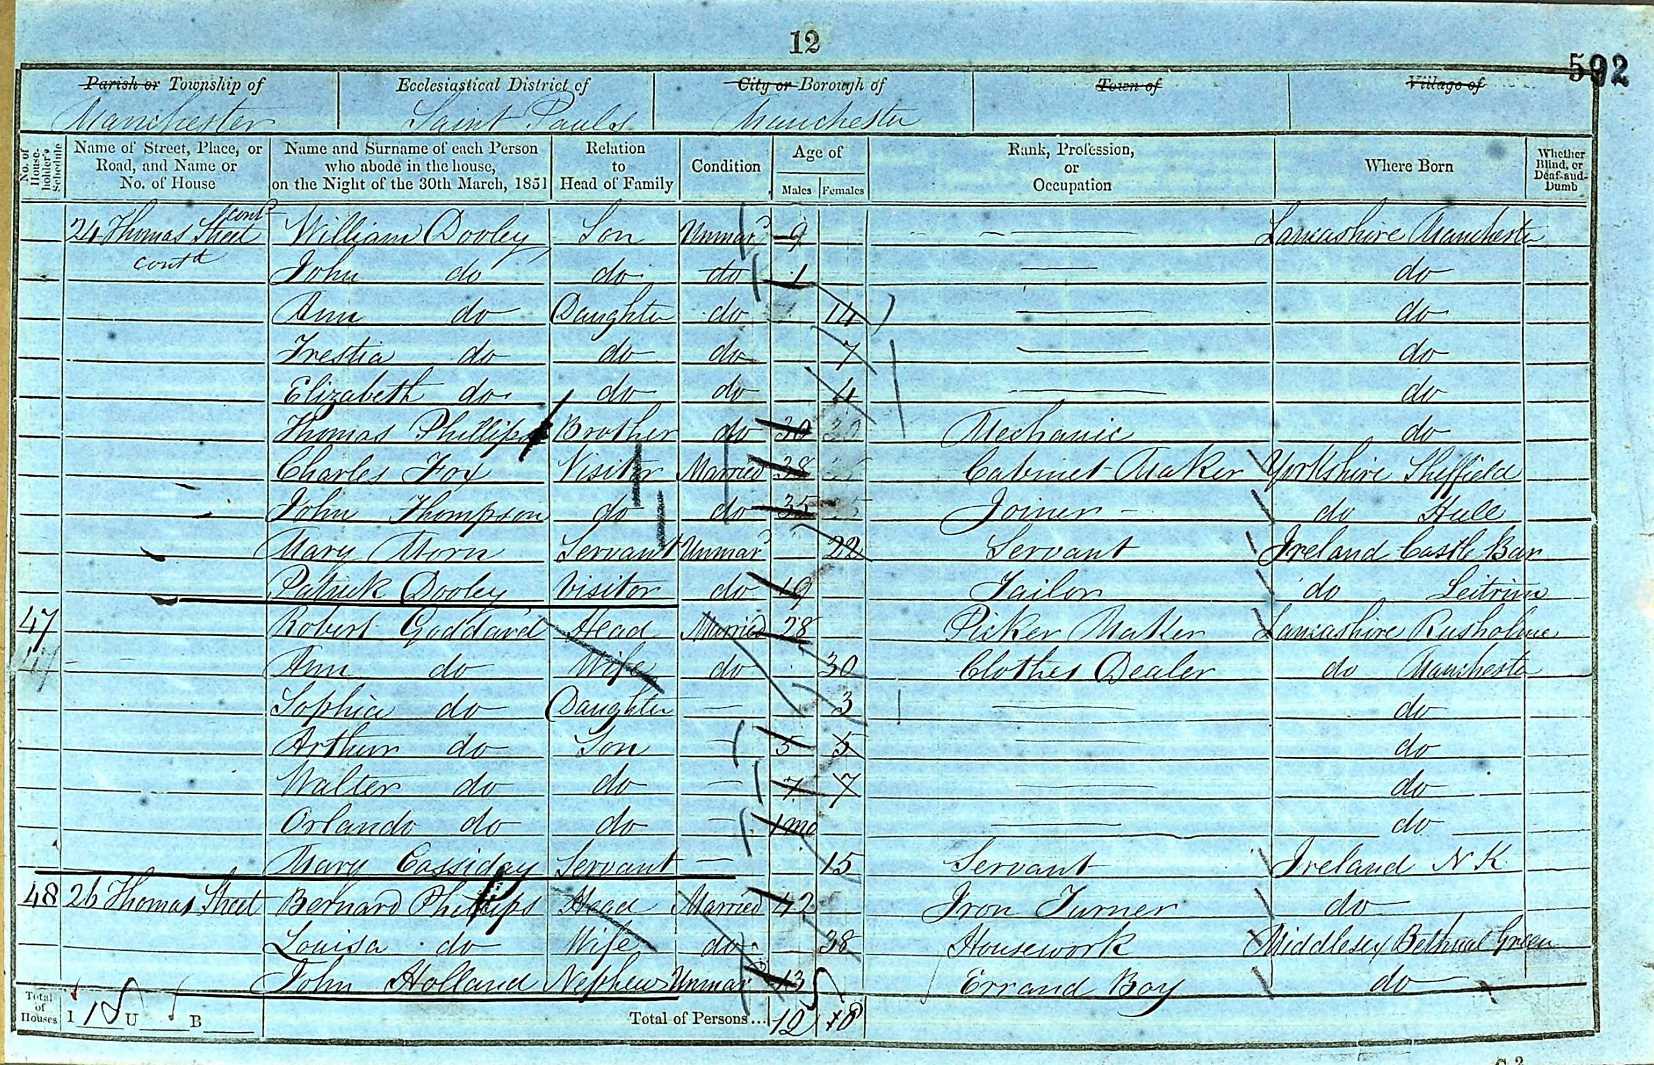 12
592
Parish or Township of Ecclesiastical District of City or Borough of Town of Village of
Manchester Saint Pauls Manchester
No. of House-holder's Schedule Name of Street, Place, or Road, and Name or No. of House Name and Surname of each Person who abode in the house, on the Night of the 30th March, 1851 Relation to Head of Family Condition Age of Males Females Rank, Profession, or Occupation Where Born Whether Blind, or Deaf-and-Dumb
24 Thomas Street contd William Dooley Son Unmard 9 Lancashire Manchester
contd John do do do 1 do
Ann do Daughter do 14 do
Trestia do do do 7 do
Elizabeth do do do 4 do
Thomas Phillips Brother do 30 30 Mechanic do
Charles Fox Visitor Married 38 Cabinet Maker Yorkshire Sheffield
John Thompson do do 35 35 Joiner do Hull
Mary Morn Servant Unmard 22 Servant Ireland Castle Bar
Patrick Dooley Visitor do 19 Tailor do Leitrim
47 Robert Goddard Head Married 28 Picker Maker Lancashire Rusholme
47 Ann do Wife do 30 Clothes Dealer do Manchester
Sophia do Daughter 3 do
Arthur do Son 5 5 do
Walter do do 7 7 do
Orlando do do 1 mo do
Mary Cassiday Servant 15 Servant Ireland N K
48 26 Thomas Street Bernard Phillips Head Married 42 Iron Turner do
Louisa do Wife do 38 Housework Middlesex Bethnal Green
John Holland Nephew Unmar 13 Errand Boy do
Total of Houses I U B Total of Persons... 12 8